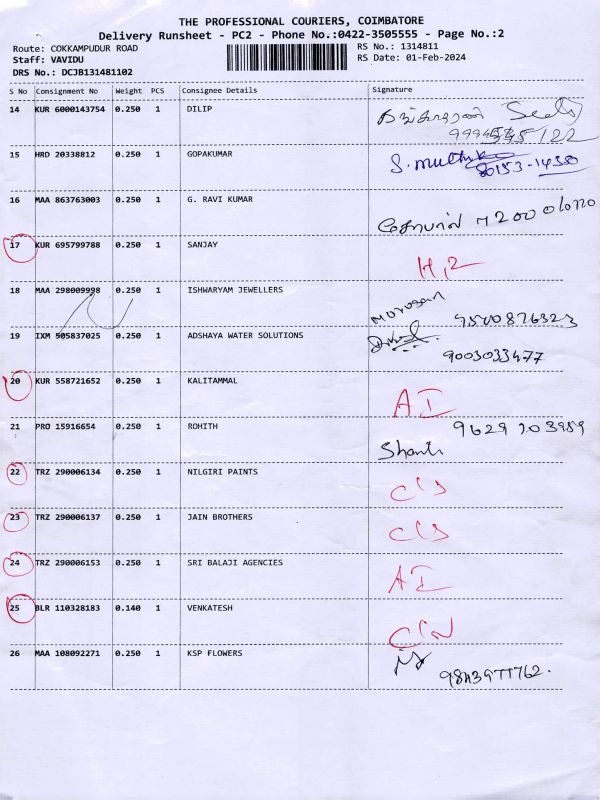 THE PROFESSIONAL COURIERS, COIMBATORE
Delivery Runsheet - PC2 - Phone No.:0422-3505555 - Page No.:2
Route: COKKAMPUDUR ROAD
Staff: VAVIDU
DRS No.: DCJB131481102
RS No.: 1314811
RS Date: 01-Feb-2024
S No Consignment No Weight PCS Consignee Details Signature
14 KUR 6000143754 0.250 1 DILIP
15 HRD 20338812 0.250 1 GOPAKUMAR S. muthu
16 MAA 863763003 0.250 1 G. RAVI KUMAR
17 KUR 695799788 0.250 1 SANJAY H,2
18 MAA 298009998 0.250 1 ISHWARYAM JEWELLERS Murugan 9500876323
19 IXM 505837025 0.250 1 ADSHAYA WATER SOLUTIONS 9003033477
20 KUR 558721652 0.250 1 KALITAMMAL AI
21 PRO 15916654 0.250 1 ROHITH 9629203989
Shanti
22 TRZ 290006134 0.250 1 NILGIRI PAINTS C/S
23 TRZ 290006137 0.250 1 JAIN BROTHERS C/S
24 TRZ 290006153 0.250 1 SRI BALAJI AGENCIES AI
25 BLR 110328183 0.140 1 VENKATESH C/N
26 MAA 108092271 0.250 1 KSP FLOWERS 9843977762.